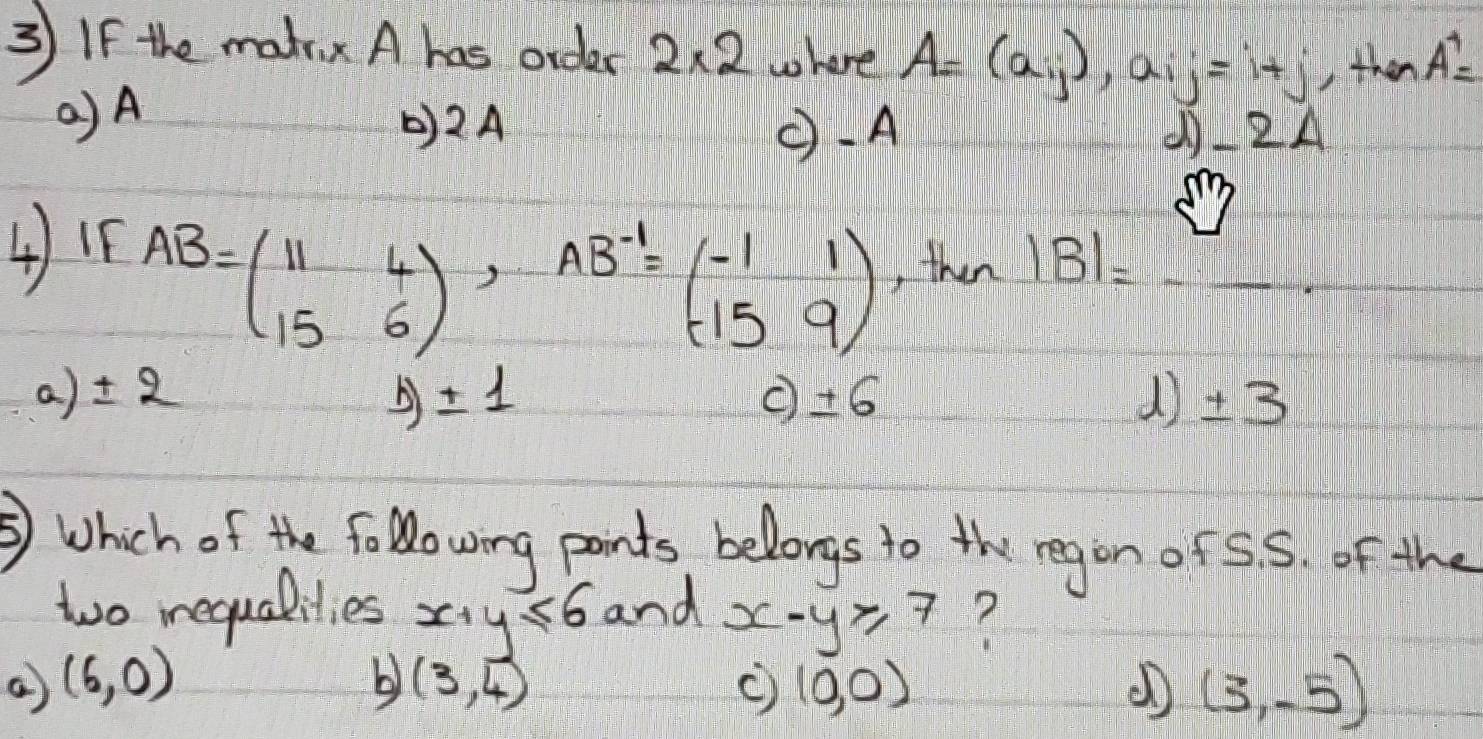 3) IF the matrix A has order 2×2 where A = (aij), aij = i+j, then Aᵗ =
a) A b) 2A c) -A d) -2A
4) IF AB = (11 4), AB⁻¹ = (-1 1), then |B| = _ _ _.
(15 6) (-15 9)
a) ± 2 b) ± 1 c) ± 6 d) ± 3
5) Which of the following points belongs to the region of S.S. of the
two inequalities x+y ≤ 6 and x-y ≥ 7 ?
a) (6,0) b) (3,4) c) (0,0) d) (3,-5)